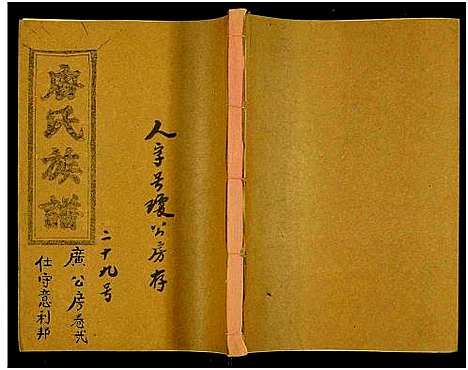 人字号琼公房存
二十九号
唐氏族譜
廣公房卷弐
仕守意利邦